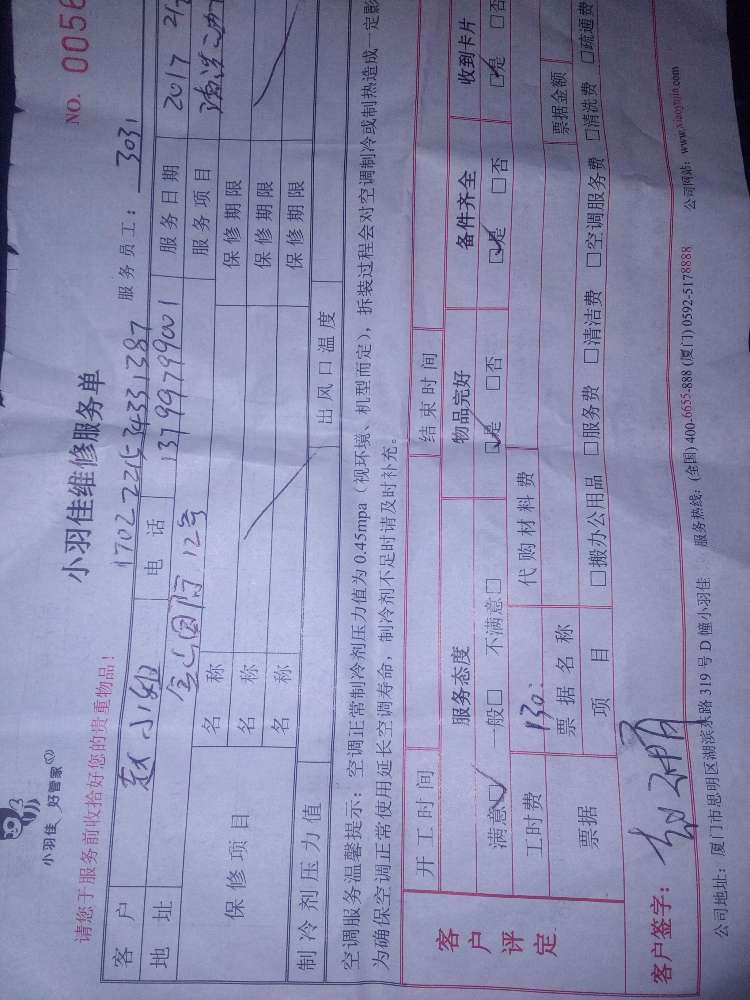 小羽佳 好管家
小羽佳维修服务单
NO. 0056
请您于服务前收拾好您的贵重物品！
1702221534331387 服务员工： 3031
客户 赵小姐 电话 13799799001 服务日期 2017 2
地址 金山国际 12号 服务项目 清洗
保修项目
名称 保修期限
名称 保修期限
名称 保修期限
制冷剂压力值 出风口温度
空调服务温馨提示：空调正常制冷剂压力值为 0.45mpa（视环境、机型而定），拆装过程会对空调制冷或制热造成一定影
为确保空调正常使用延长空调寿命，制冷剂不足时请及时补充。
客户评定
开工时间 结束时间
服务态度 物品完好 备件齐全 收到卡片
满意☑ 一般□ 不满意□ ☑是 □否 ☑是 □否 ☑是 □否
工时费 130 代购材料费
票据 票据名称 票据金额
项目 □搬办公用品 □服务费 □清洁费 □空调服务费 □清洗费 □疏通费
客户签字：
公司地址：厦门市思明区湖滨东路 319 号 D 幢小羽佳 服务热线：(全国) 400-6655-888 (厦门) 0592-5178888 公司网站：www.xiaoyujia.com